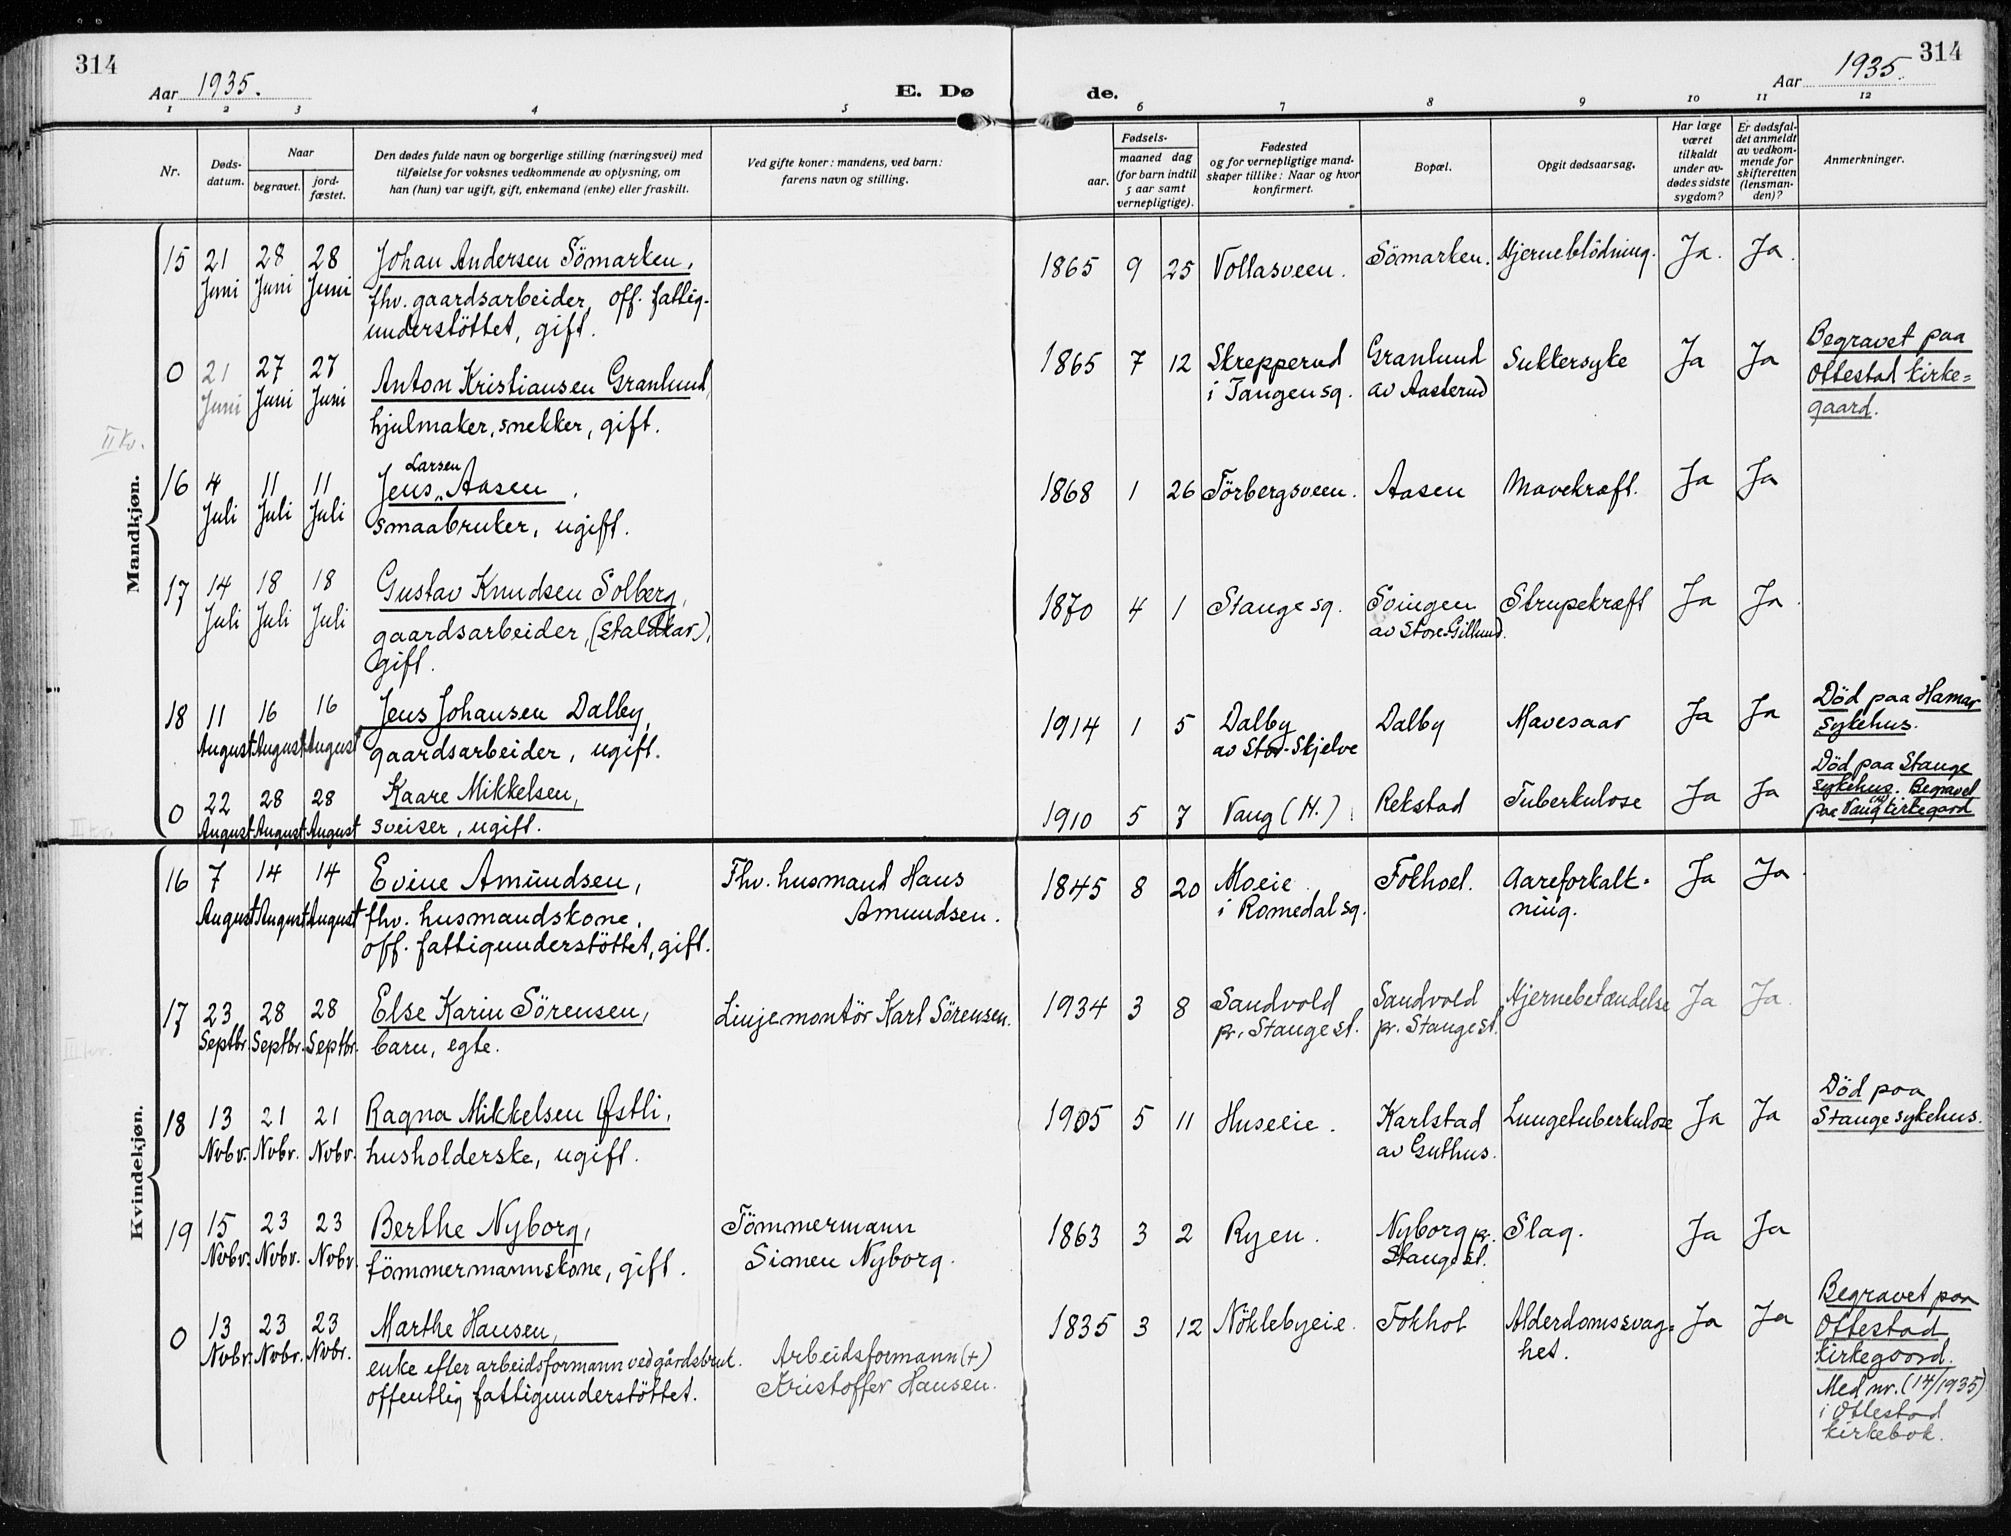 314
Aar 1935.
E. Dø
de.
Aar 1935.
314
1 2 3 4 5 6 7 8 9 10 11 12
Nr.
Døds-
datum.
Naar
begravet.
jord-
fæstet.
Den dødes fulde navn og borgerlige stilling (næringsvei) med
tilføielse for voksnes vedkommende av oplysning, om
han (hun) var ugift, gift, enkemand (enke) eller fraskilt.
Ved gifte koner: mandens, ved barn:
farens navn og stilling.
Fødsels-
aar.
maaned dag
(for barn indtil
5 aar samt
vernepligtige).
Fødested
og for vernepligtige mand-
skaper tillike: Naar og hvor
konfirmert.
Bopæl.
Opgit dødsaarsag.
Har læge
været
tilkaldt
under av-
dødes sidste
sygdom?
Er dødsfal-
det anmeldt
av vedkom-
mende for
skifteretten
(lensman-
den)?
Anmerkninger.
Mandkjøn.
II kv.
15 21 28 28 Johan Andersen Sömarken, 1865 9 25 Vollasveen. Sömarken. Hjerneblödning. Ja. Ja.
Juni Juni Juni fhv. gaardsarbeider, off. fattig-
understöttet, gift.
0 21 27 27 Anton Kristiansen Granlund, 1865 7 12 Skrepperud Granlund Sukkersyke Ja Ja Begravet paa
Juni Juni Juni hjulmaker, snekker, gift. i Tangen sg. av Aasterud Ottestad kirke=
gaard.
16 4 11 11 Jens Larsen Aasen, 1868 1 26 Törbergsveen. Aasen Mavekræft. Ja Ja
Juli Juli Juli smaabruker, ugift.
17 14 18 18 Gustav Knudsen Solberg, 1870 4 1 Stange sg. Svingen Strupekræft Ja Ja.
Juli Juli Juli gaardsarbeider, (staldkar), av Store-Gillund.
gift.
18 11 16 16 Jens Johansen Dalby, 1914 1 5 Dalby Dalby Mavesaar Ja Ja Död paa Hamar
August August August gaardsarbeider, ugift. av Stor-Skjelve sykehus.
0 22 28 28 Kaare Mikkelsen, 1910 5 7 Vang (H.) Rekstad Tuberkulose Ja Ja Död paa Stange
August August August sveiser, ugift. sykehus. Begravet
paa Vang (H) kirkegaard
III kv.
Kvindekjøn.
16 7 14 14 Evine Amundsen, Fhv. husmand Hans 1845 8 20 Moeie Fokhol. Aareforkalk- Ja Ja.
August August August fhv. husmandskone, Amundsen. i Romedal sg. ning.
off. fattigunderstöttet, gift.
17 23 28 28 Else Karin Sörensen, Linjemontör Karl Sörensen. 1934 3 8 Sandvold Sandvold Hjernebetændelse Ja Ja.
Septbr. Septbr. Septbr. barn, egte. pr. Stange st. pr. Stange st.
III kv.
18 13 21 21 Ragna Mikkelsen Østli, 1905 5 11 Huseeie. Karlstad Lungetuberkulose Ja Ja Död paa
Novbr. Novbr. Novbr. husholderske, ugift. av Guthus. Stange sykehus.
19 15 23 23 Berthe Nyborg, Tömmermann 1863 3 2 Ryen. Nyborg pr. Slag. Ja Ja
Novbr. Novbr. Novbr. tömmermannskone, gift. Simen Nyborg. Stange st.
0 13 23 23 Marthe Hansen, Arbeidsformann (+) 1835 3 12 Nöklebyeie. Fokhol Alderdomssvag= Ja Ja Begravet paa
Novbr. Novbr. Novbr. enke efter arbeidsformann ved gårdsbruk. Kristoffer Hansen. het. Ottestad
offentlig fattigunderstöttet. kirkegaard.
Med nr. (14/1935)
i Ottestad
kirkebok.